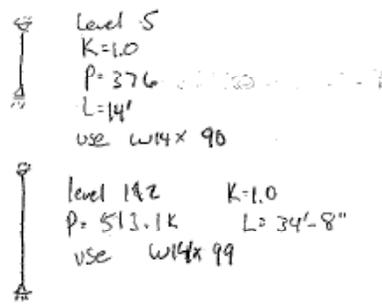 Level 5
K=1.0
P= 376
L=14'
use W14x 90
level 1&2 K=1.0
P= 513.1K L= 34'-8"
use W14x 99